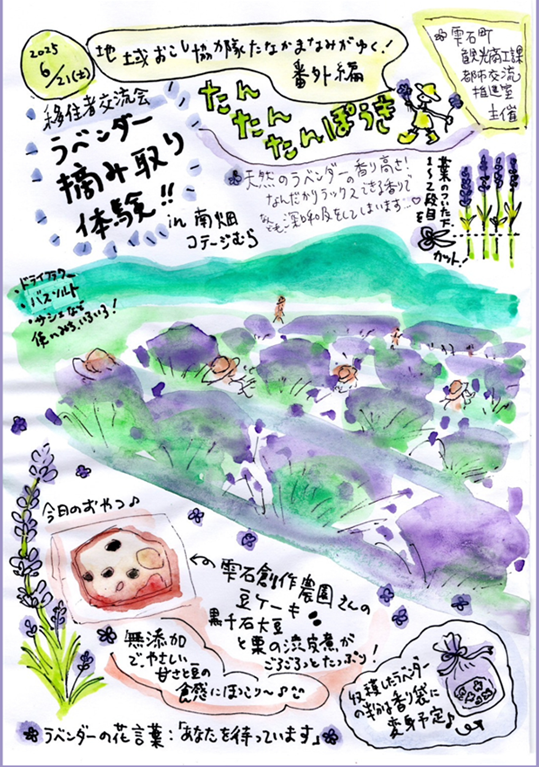 2025
6/21(土)
地域おこし協力隊たなかまなみがゆく!
番外編
たん
たん
たんぽうき
雫石町
観光商工課
都市交流
推進室
主催
移住者交流会
ラベンダー
摘み取り
体験!!
in 南畑
コテージむら
天然のラベンダーの香り高さ!
なんだかリラックスできる香りで
なんども深呼吸をしてしまいます…♡
葉のついた下
1〜2段目を
カット!
・ドライフラワー
・バスソルト
・サシェなど
使いみちいろいろ!
今日のおやつ♪
雫石創作農園さんの
豆ケーキ
黒千石大豆
と栗の渋皮煮が
ごろごろっとたっぷり!
無添加
でやさしい
甘さと豆の
食感にほっこり〜♪
収穫したラベンダー
の
香り袋に
変身予定♪
ラベンダーの花言葉:「あなたを待っています」